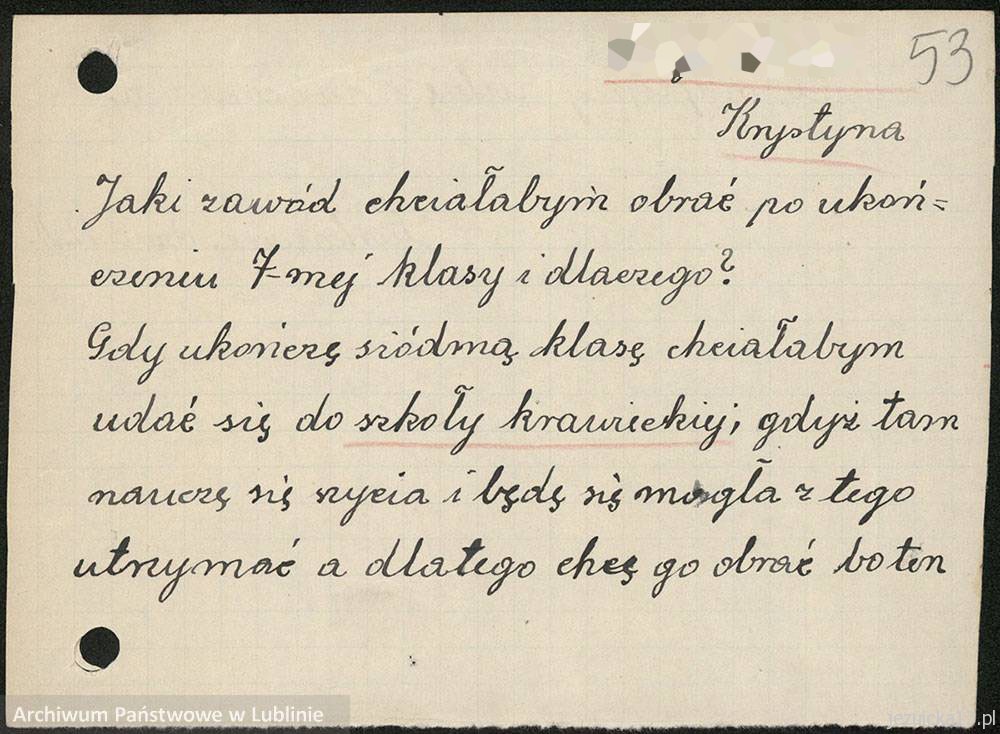 53
Krystyna
Jaki zawód chciałabym obrać po ukoń=
czeniu 7-mej klasy i dlaczego?
Gdy ukończę siódmą klasę chciałabym
udać się do szkoły krawieckiej, gdyż tam
nauczę się szycia i będę się mogła z tego
utrzymać a dlatego chcę go obrać bo ten
Archiwum Państwowe w Lublinie